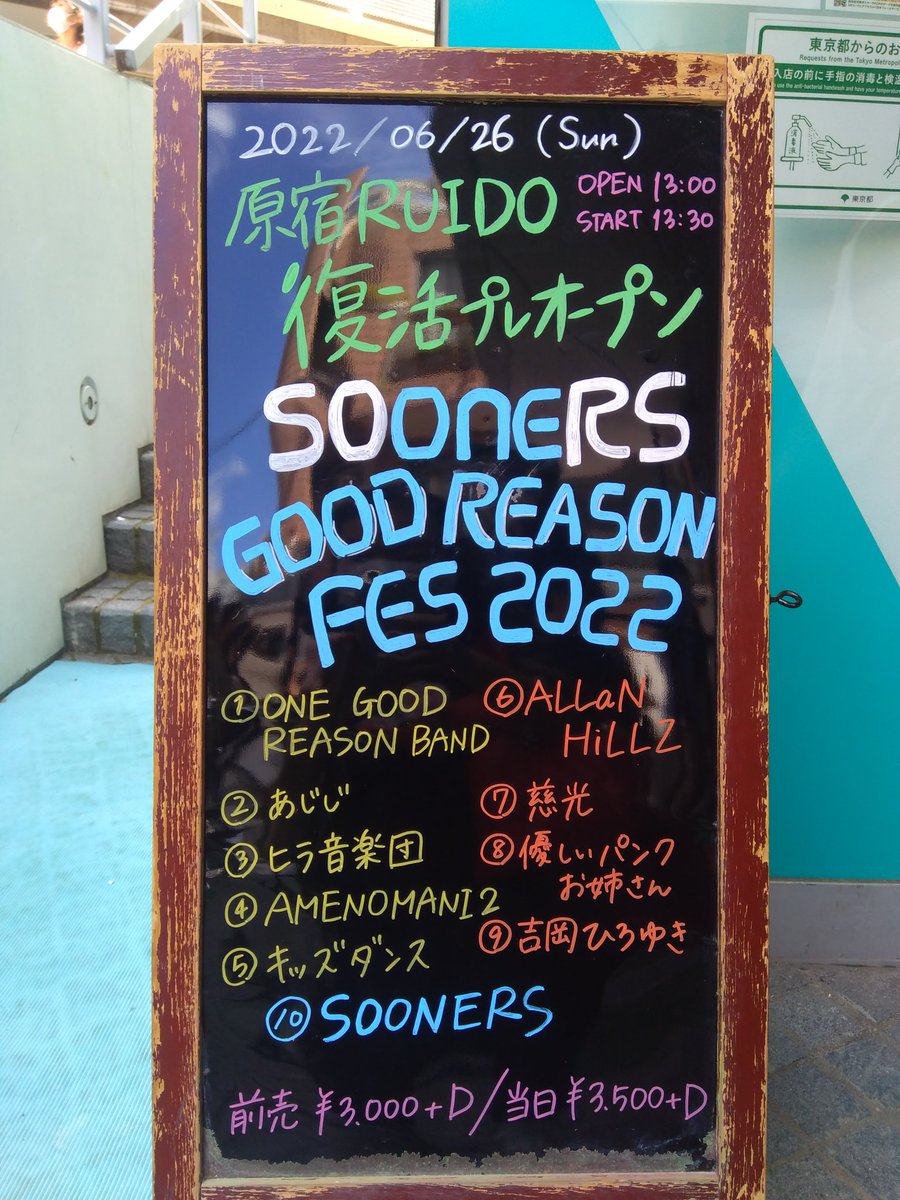 2022/06/26 (Sun)
原宿RUIDO
OPEN 13:00
START 13:30
復活プレオープン
SOONERS
GOOD REASON
FES 2022
① ONE GOOD
REASON BAND
② あじじ
③ ヒラ音楽団
④ AMENOMANI2
⑤ キッズダンス
⑥ ALLaN
HiLLZ
⑦ 慈光
⑧ 優しいパンク
お姉さん
⑨ 吉岡ひろゆき
⑩ SOONERS
前売 ¥3.000+D/当日 ¥3.500+D
東京都からのお
Requests from the Tokyo Metropol
入店の前に手指の消毒と検温
use the anti-bacterial handwash and have your temperature
消毒液
東京都